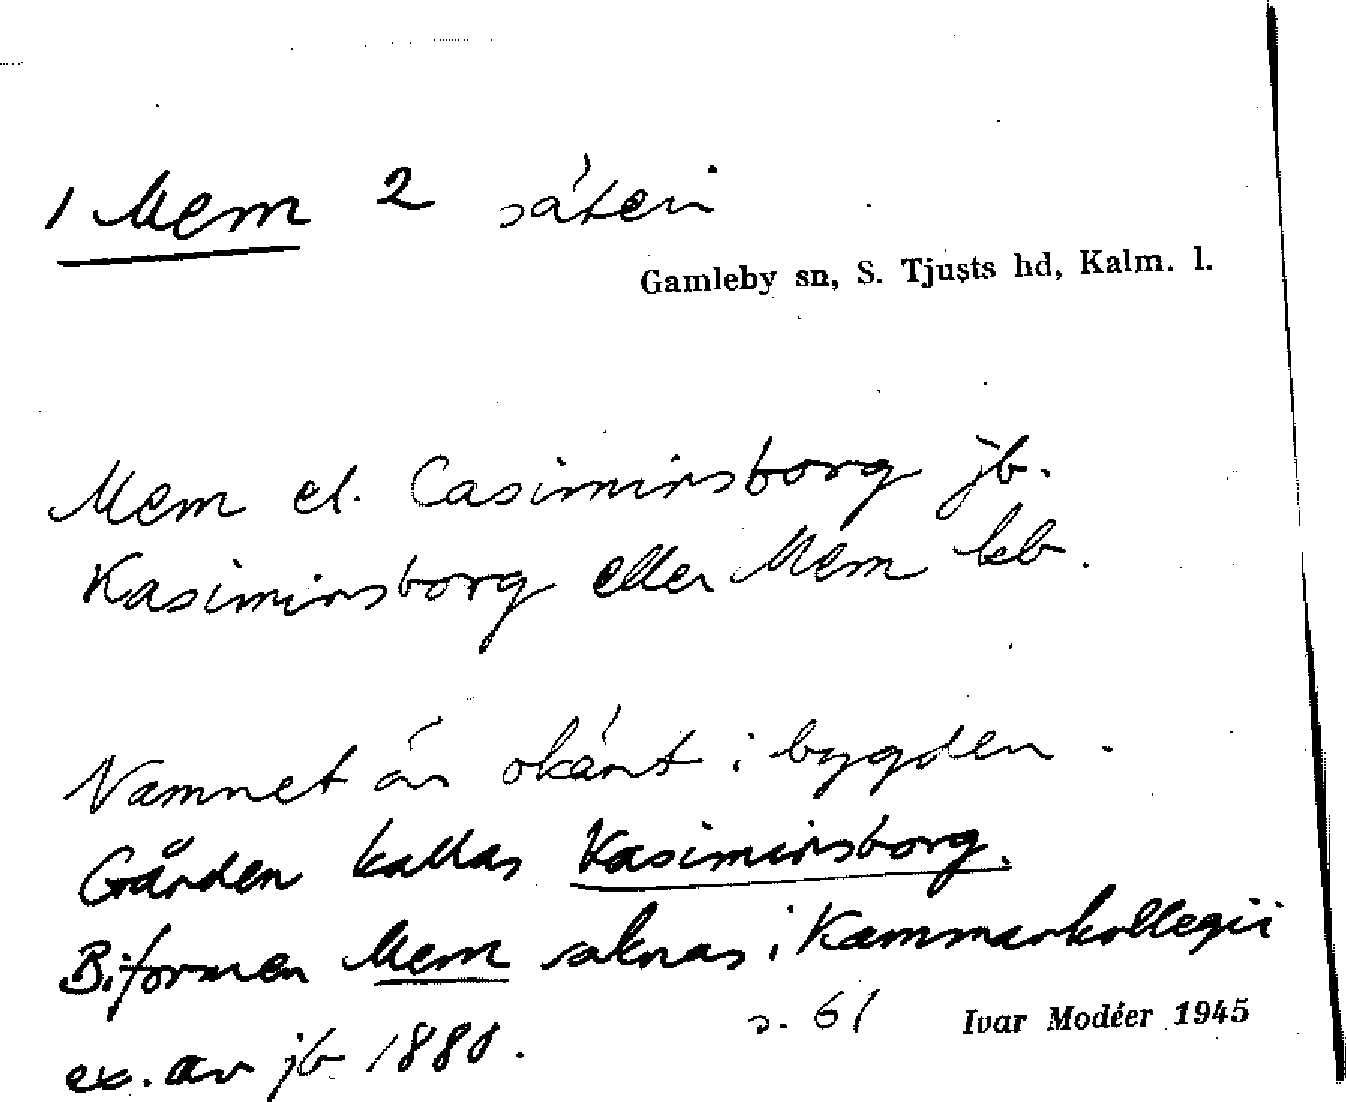 1 Mem 2 säteri
Gamleby sn, S. Tjusts hd, Kalm. l.
Mem el. Casimirsborg jb.
Kasimirsborg eller Mem kb.
Namnet är okänt i bygden.
Gården kallas Kasimirsborg.
Biformen Mem saknas i Kammarkollegii
ex. av jb 1880.
s. 61 Ivar Modéer 1945